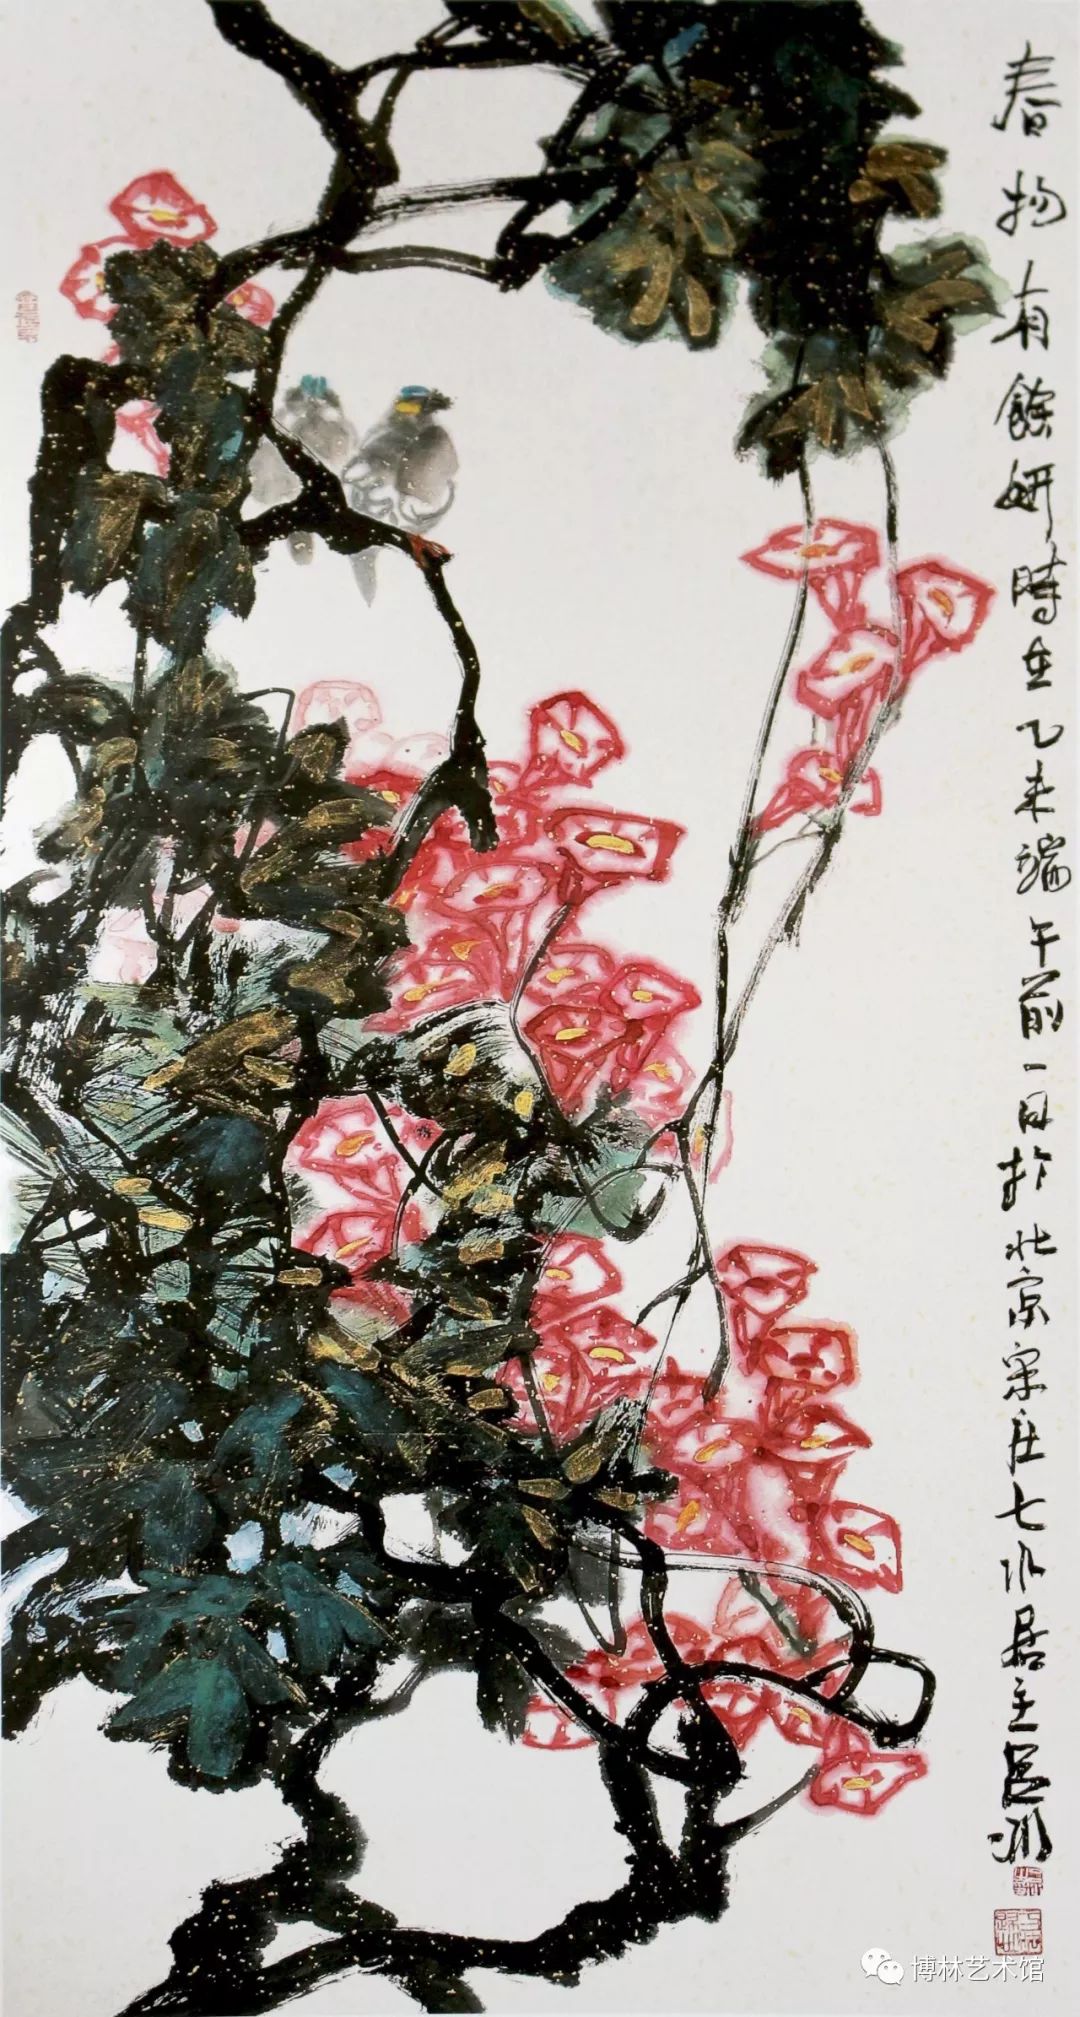 春物有餘妍時在乙未端午前一日於北京宋庄七水居主呂
博林艺术馆